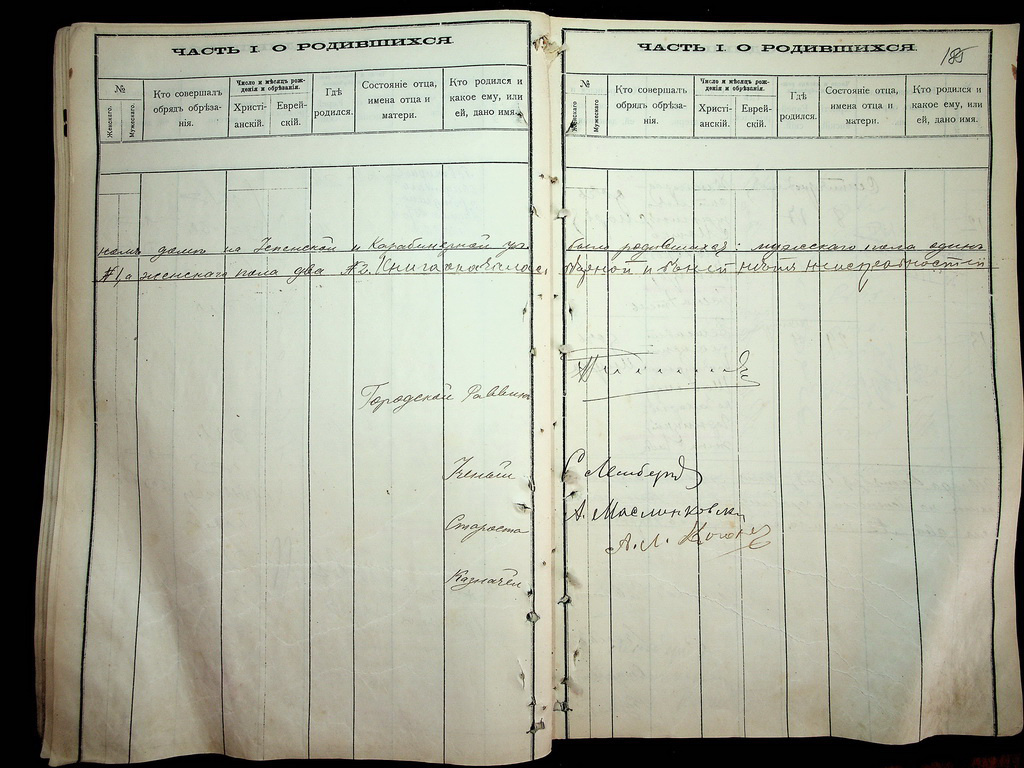 ЧАСТЬ I. О РОДИВШИХСЯ
№
Женскаго.
Мужескаго.
Кто совершалъ обрядъ обрѣзанія.
Число и мѣсяцъ рожденія и обрѣзанія.
Христіанскій.
Еврейскій.
Гдѣ родился.
Состояніе отца, имена отца и матери.
Кто родился и какое ему, или ей, дано имя.
ЧАСТЬ I. О РОДИВШИХСЯ
185
№
Женскаго
Мужескаго
Кто совершалъ обрядъ обрѣзанія.
Число и мѣсяцъ рожденія и обрѣзанія.
Христіанскій.
Еврейскій.
Гдѣ родился.
Состояніе отца, имена отца и матери.
Кто родился и какое ему, или ей, дано имя.
номъ домѣ по Успенской и Карабинерной ул. было родившихся: мужескаго пола одинъ
№1, а женскаго пола два №2. Книга
Городской Раввинъ
Ученый
С Лемберг
Староста
А. Маслянковск
А. Л. Коган
Казначей